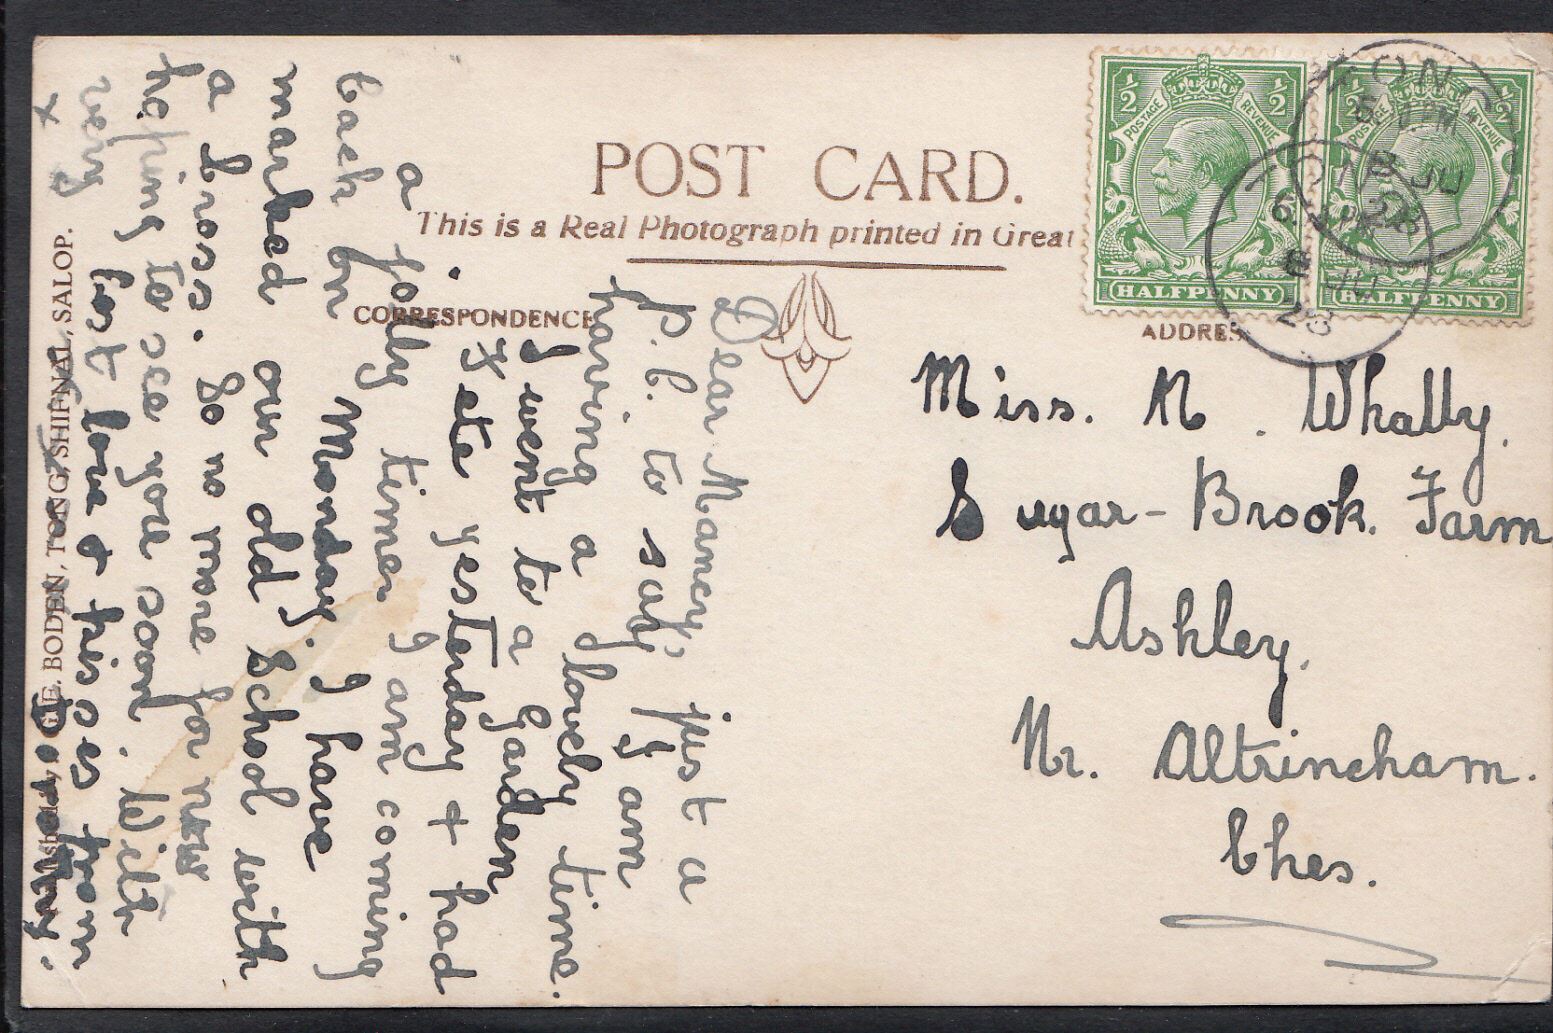 POST CARD.
This is a Real Photograph printed in Great
CORRESPONDENCE
ADDRES
½ ½
POSTAGE REVENUE
HALFPENNY
½ ½
POSTAGE REVENUE
HALFPENNY
TONG
8 JU
28
TONG
6 PM
8 JU
28
Miss. N. Whally,
Sugar-Brook. Farm
Ashley,
Nr. Altrincham.
Ches.
Dear Nancy, just a
P.C. to say I am
having a lovely time.
I went to a Garden
Fete yesterday & had
a jolly time I am coming
back on Monday. I have
marked our old school with
a cross. So no more for now
hoping to see you soon. With
best love & kisses from
x
G.E. BODEN, TONG, SHIFNAL, SALOP.